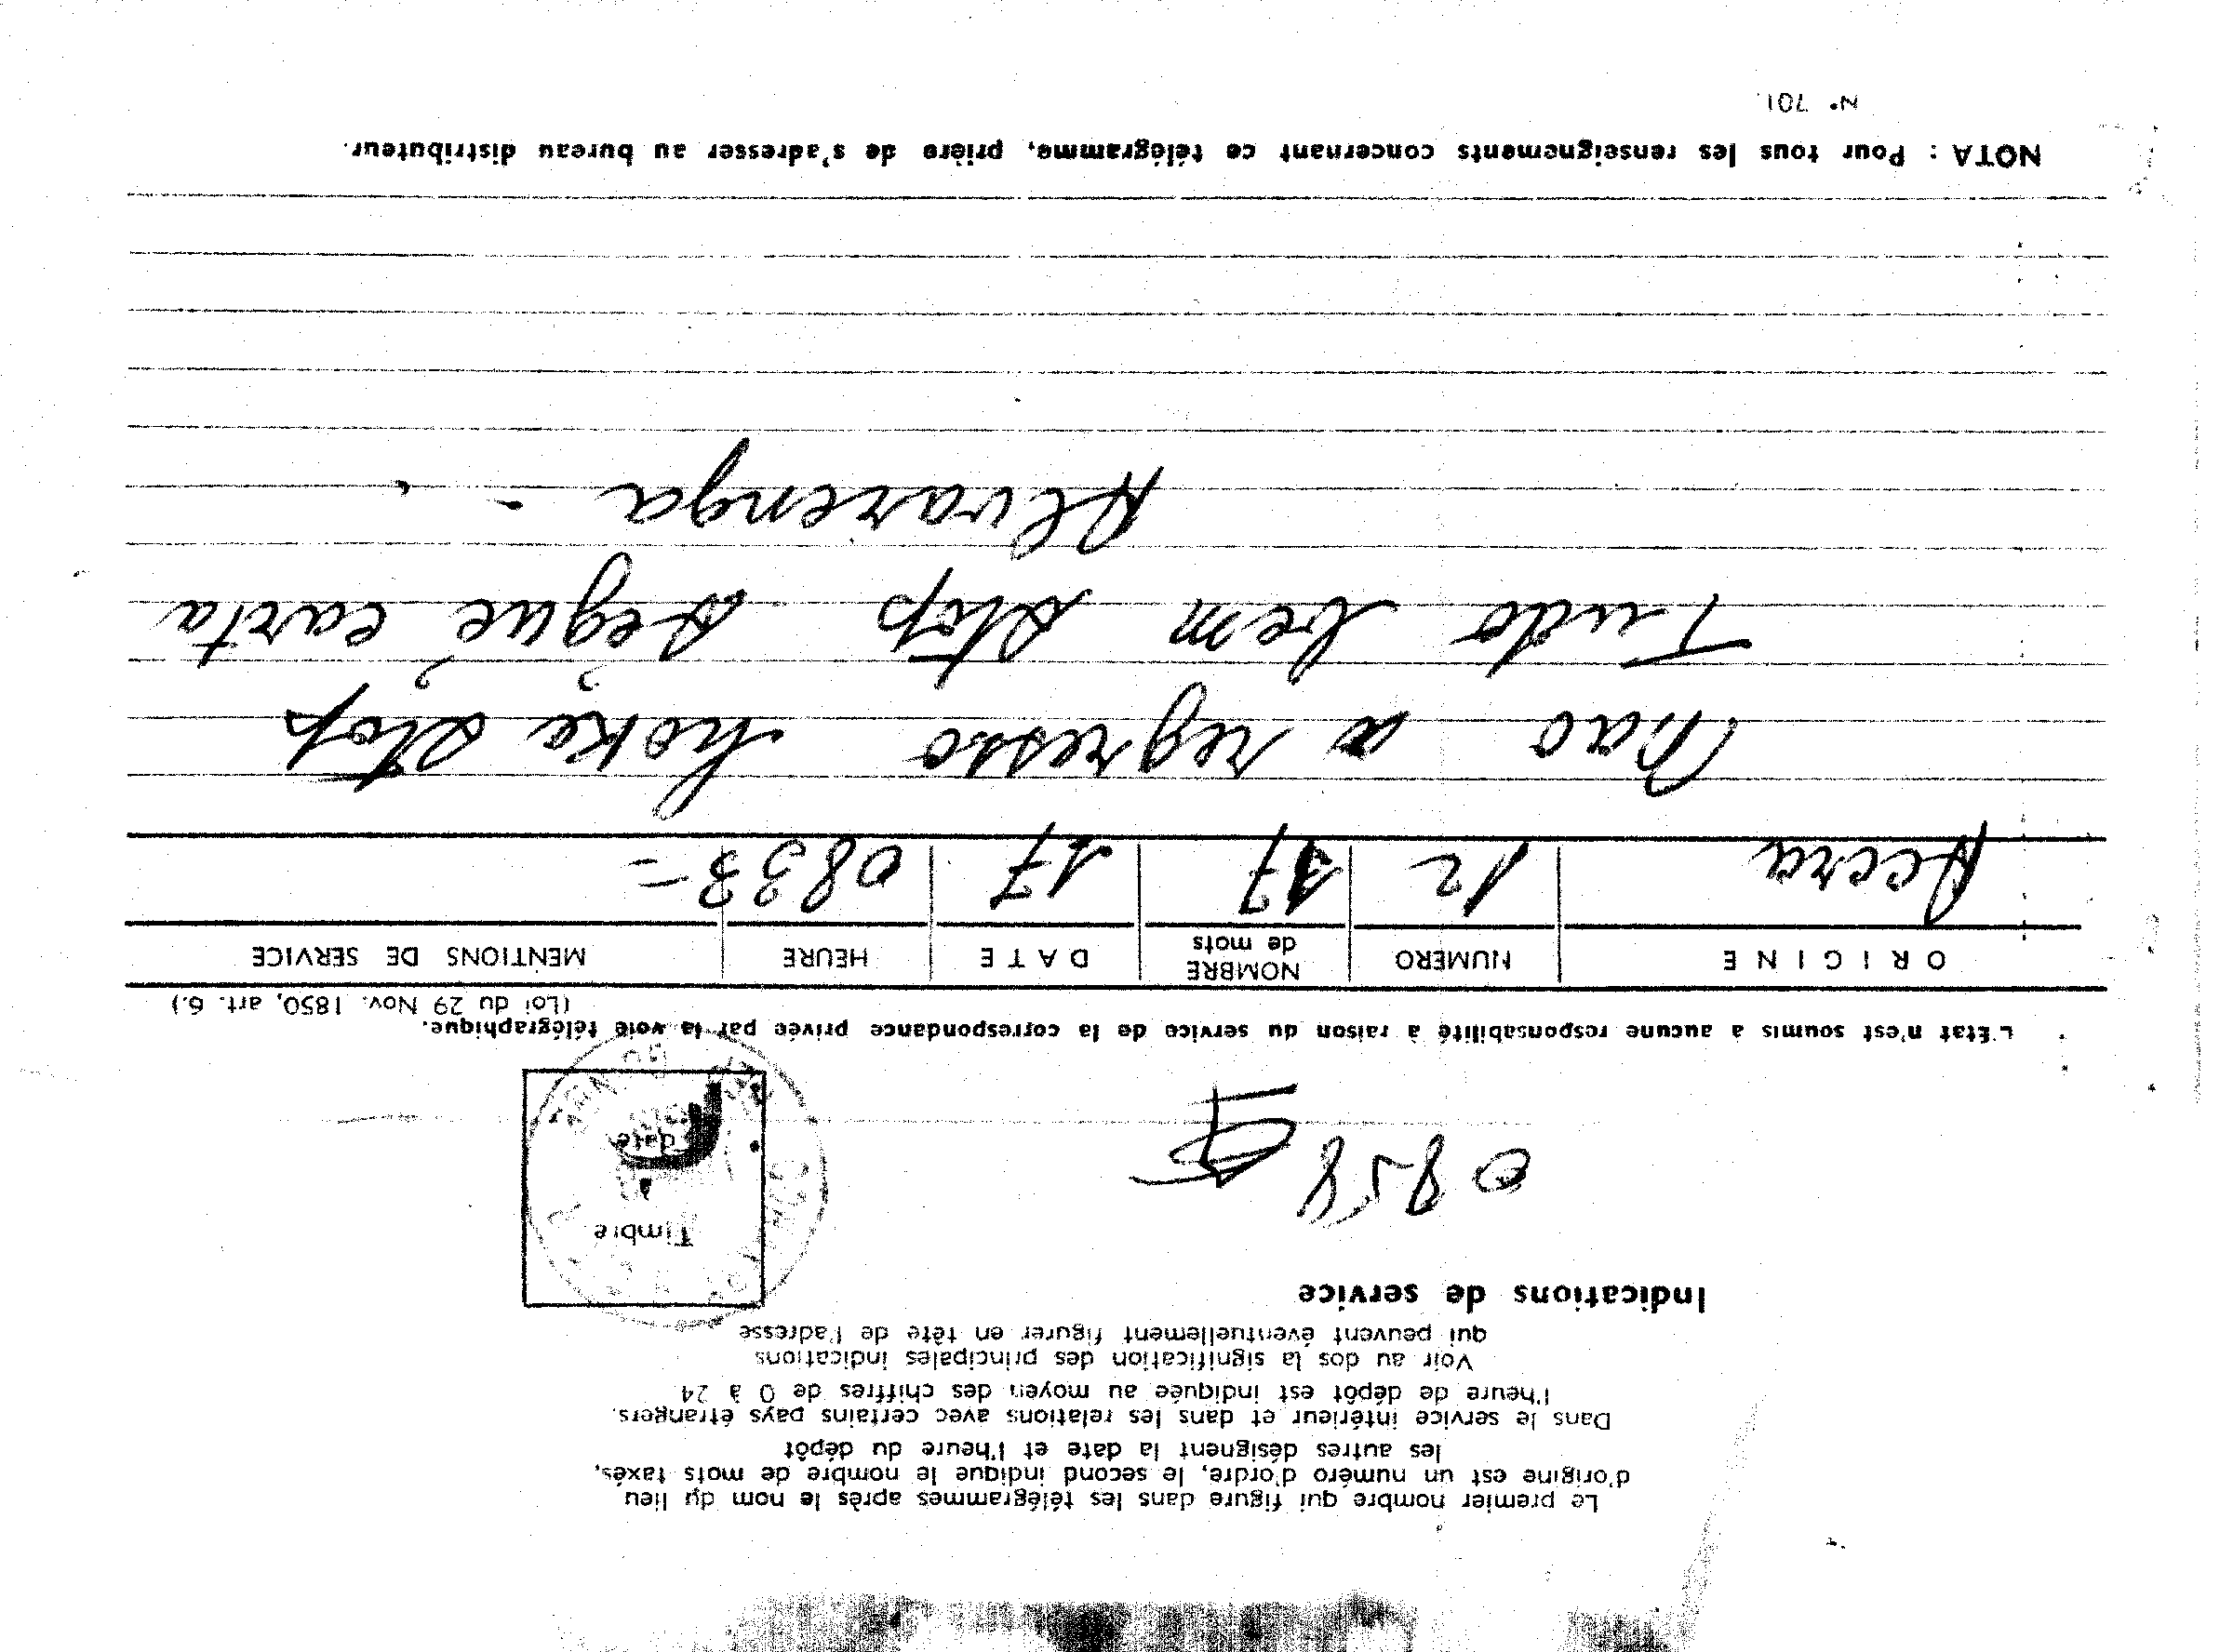 Le premier nombre qui figure dans les télégrammes après le nom du lieu
d'origine est un numéro d'ordre, le second indique le nombre de mots taxés,
les autres désignent la date et l'heure du dépôt
Dans le service intérieur et dans les relations avec certains pays étrangers,
l'heure de dépôt est indiquée au moyen des chiffres de 0 à 24
Voir au dos la signification des principales indications
qui peuvent éventuellement figurer en tête de l'adresse
Indications de service
Timbre
à
date
0858
L'Etat n'est soumis à aucune responsabilité à raison du service de la correspondance privée par la voie télégraphique.
(Loi du 29 Nov. 1850, art. 6.)
ORIGINE NUMERO NOMBRE de mots DATE HEURE MENTIONS DE SERVICE
Accra 12 17 17 0833 =
Nao a regresso stop
Tudo bem stop segue carta
Alvarenga -
NOTA : Pour tous les renseignements concernant ce télégramme, prière de s'adresser au bureau distributeur.
N° 701